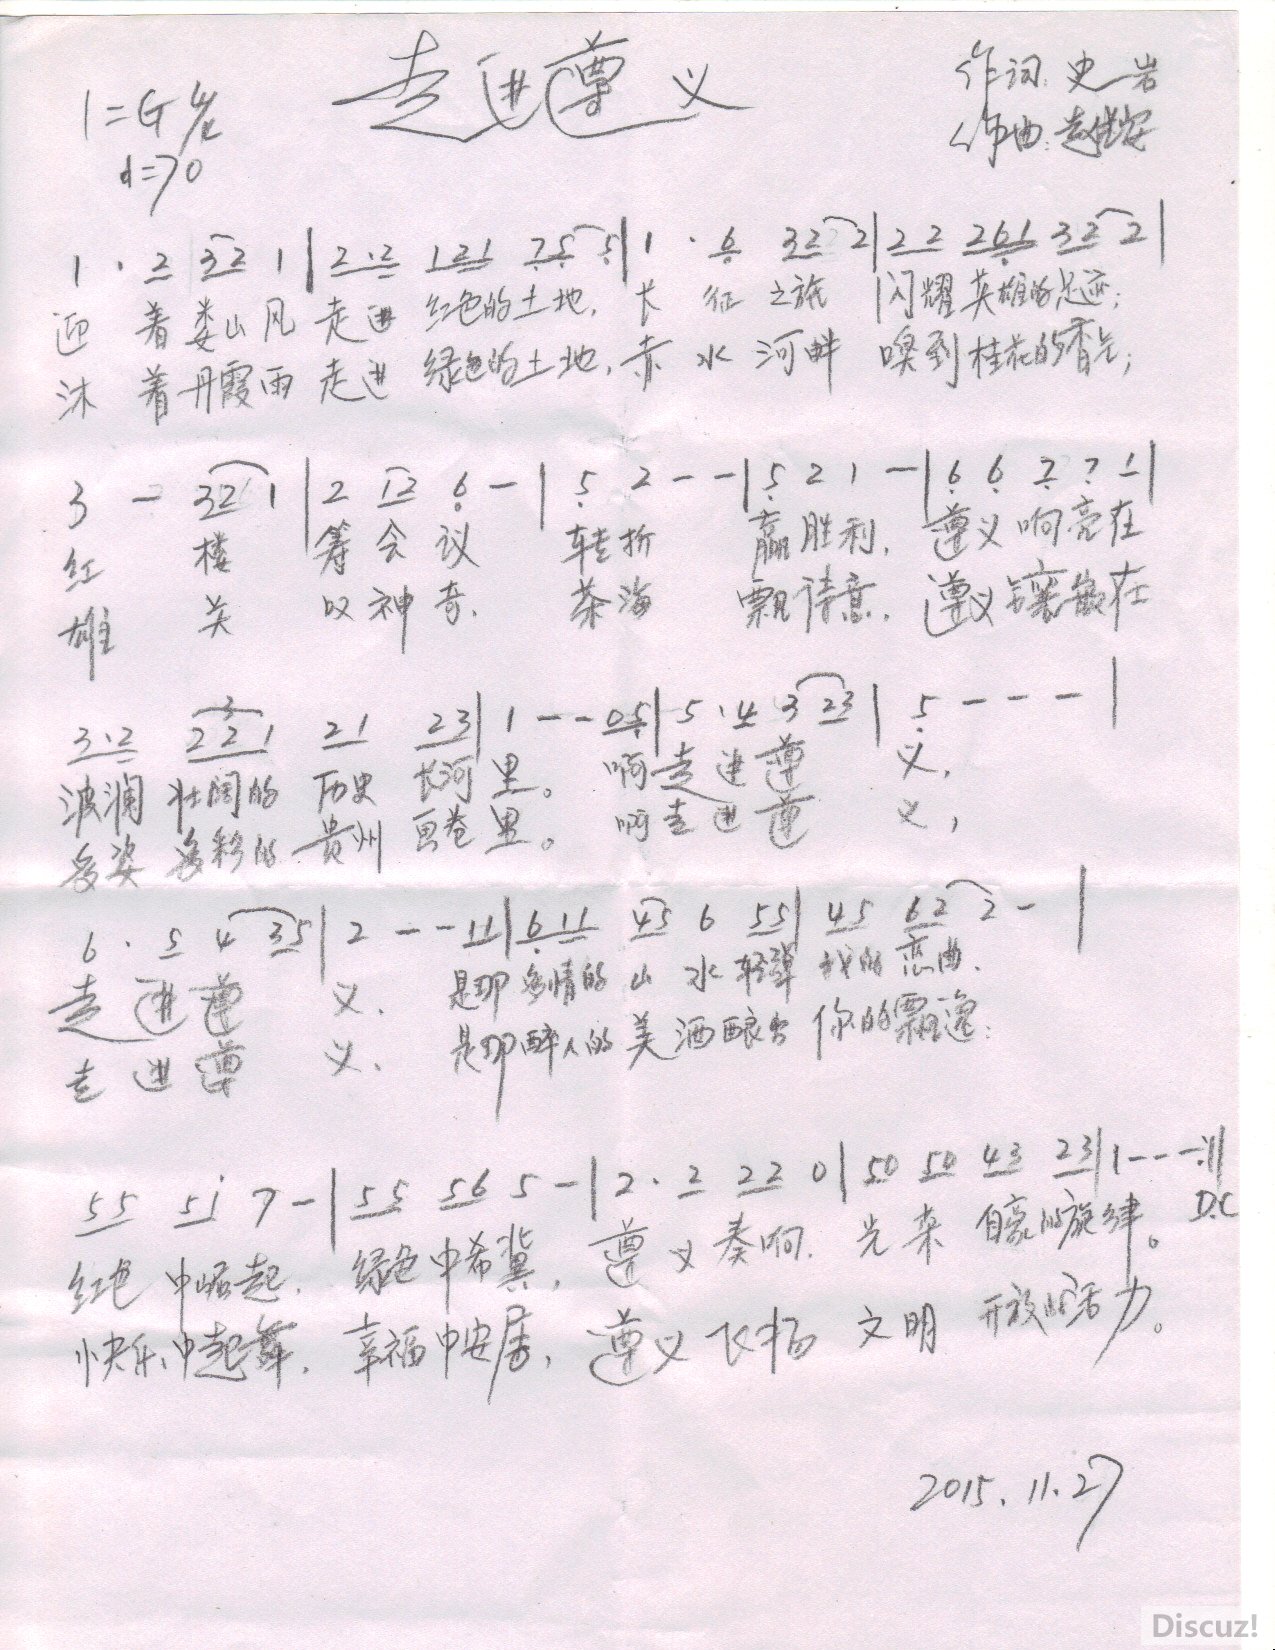 走进遵义
作词:史岩
1=G 4/4
作曲:赵
♩=70
1 · 2 32 1 | 2·2 121 75 5 | 1 · 6 32 2 | 22 261 32 2 |
迎 着娄山风 走进 红色的土地, 长 征 之旅 闪耀 英雄的足迹;
沐 着丹霞雨 走进 绿色的土地, 赤 水 河畔 嗅到桂花的香气;
3 - 32 1 | 2 12 6 - | 5 2 - - | 5 2 1 - | 6 6 7 7 1 |
红 楼 筹会议 转折 赢胜利, 遵义响亮在
雄 关 叹神奇, 茶海 飘诗意, 遵义镶嵌在
3·2 221 21 23 | 1 - - 05 | 5 · 4 3 23 | 5 - - - |
波澜 壮阔的 历史 长河 里。 啊走进遵 义,
多姿 多彩的 贵州 画卷 里。 啊走进遵 义,
6 · 5 4 35 | 2 - - 11 | 611 45 6 55 | 45 62 2 - |
走 进遵 义, 是那多情的 山 水轻弹 我的 恋曲,
走 进遵 义, 是那醉人的 美 酒酿出 你的飘逸;
55 5i 7 - | 55 56 5 - | 2 · 2 22 0 | 50 50 43 23 | 1 - - - :||
D.C
红色 中崛起, 绿色中希冀, 遵义奏响 光荣 自豪的旋律。
快乐中起舞, 幸福中安居, 遵义飞扬 文明 开放的活力。
2015.11.27
Discuz!